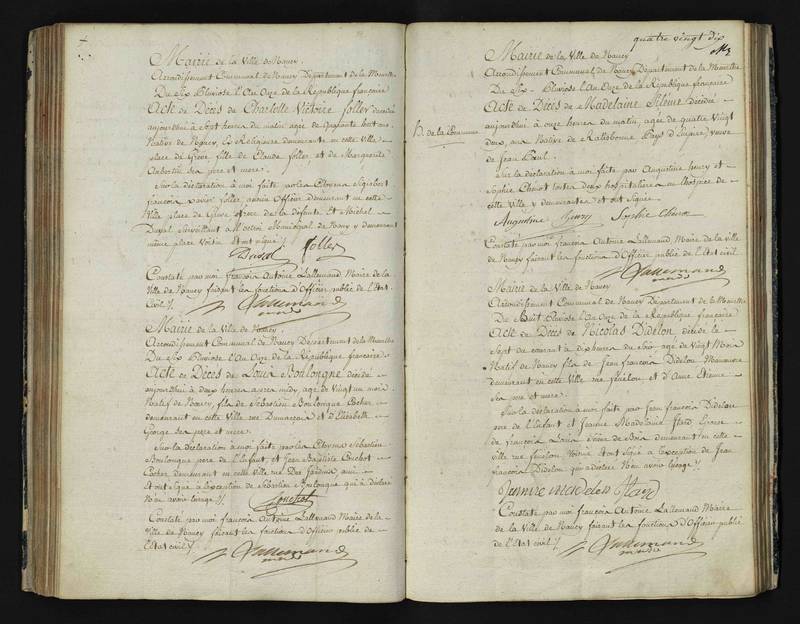 Mairie de la Ville de Nancy.
Arrondissement Communal de Nancy Département de la Meurthe
Du Six Pluviose l'An Onze de la République française
Acte de Décès de Charlotte Victoire foller décédée
aujourdhui à Sept heures du matin agée de quarante huit ans,
Native de Nancy, Ex Religieuse demeurante en cette Ville
place de Greve fille de Claude foller, et de Marguerite
Sea pere et mere.
Sur la déclaration à moi faite par les Citoyens Sigisbert
françois xavier foller, ancien Officier demeurant en cette
Ville place de Greve frere de la défunte, Et Michel
Duval Surveillant à l'octroi Municipal de Nancy y demeurant
même place Voisin Et ont signé /.
Duval foller
Constaté par moi françois Antoine Lallemand Maire de la
Ville de Nancy faisant les fonctions d'Officier public de l'Etat
Civil /. Lallemand
maire
Mairie de la Ville de Nancy.
Arrondissement Communal de Nancy Département de la Meurthe
Du Six Pluviose l'An Onze de la République française.
Acte de Décès de Louis Boulongne décédé
aujourdhui à deux heures apres midy, agé de Vingt un mois
Natif de Nancy, fils de Sébastien Boulongne Cocher
demeurant en cette Ville rue et d'Elisabeth
George Sea pere et mere.
Sur la déclaration à moi faite par les Citoyens Sébastien
Boulongne pere de l'enfant, et Jean Baptiste Couchot
Cocher demeurant en cette Ville rue Des Jardins ami
Et ont Signé à l'exception de Sébastien Boulongne qui à déclaré
N'en avoir l'usage /. Couchot
Constaté par moi françois Antoine Lallemand Maire de la
Ville de Nancy faisant les fonctions d'Officier public de
l'Etat civil /. Lallemand
maire
quatre vingt dix
Mairie de la Ville de Nancy
Arrondissement Communal, de Nancy Département de la Meurthe
Du Six Pluviose l'An Onze de la République française
Acte de Décès de Madelaine décédée
H. de la aujourdhui à onze heures du matin, agée de quatre Vingt
deux, ans Native de Ratisbonne Pays d'Empire, veuve
de Jean Paul.
Sur la déclaration à moi faite par Augustine henry et
Sophie toutes deux hospitalieres au lhospice de
cette Ville y demeurantes et ont Signé
Augustine henry Sophie
Constaté par moi françois Antoine Lallemand Maire de la Ville
de Nancy faisant les fonctions d'Officier public de l'Etat civil
Lallemand
maire
Mairie de la Ville de Nancy
Arrondissement Communal de Nancy Département de la Meurthe
Du Huit Pluviose l'An Onze de la République française
Acte de Décès de Nicolas Didelon décédé le
Sept du courant à dix heures du Soir agé de Vingt Mois
Natif de Nancy fils de Jean françois Didelon Manœuvre
demeurant en cette Ville rue fénélon et d'Anne Etienne
Sea pere et mere.
Sur la déclaration à moi faite par Jean françois Didelon
pere de l'enfant et Jeanne Madelaine
de françois Louis de Bois demeurant en cette
Ville rue fénélon Voisine Et ont Signé à l'exception de Jean
françois Didelon, qui a déclaré N'en avoir l'usage /.
Constaté par moi françois Antoine Lallemand Maire
de la Ville de Nancy faisant les fonctions d'Officier public
de l'Etat civil /. Lallemand
maire